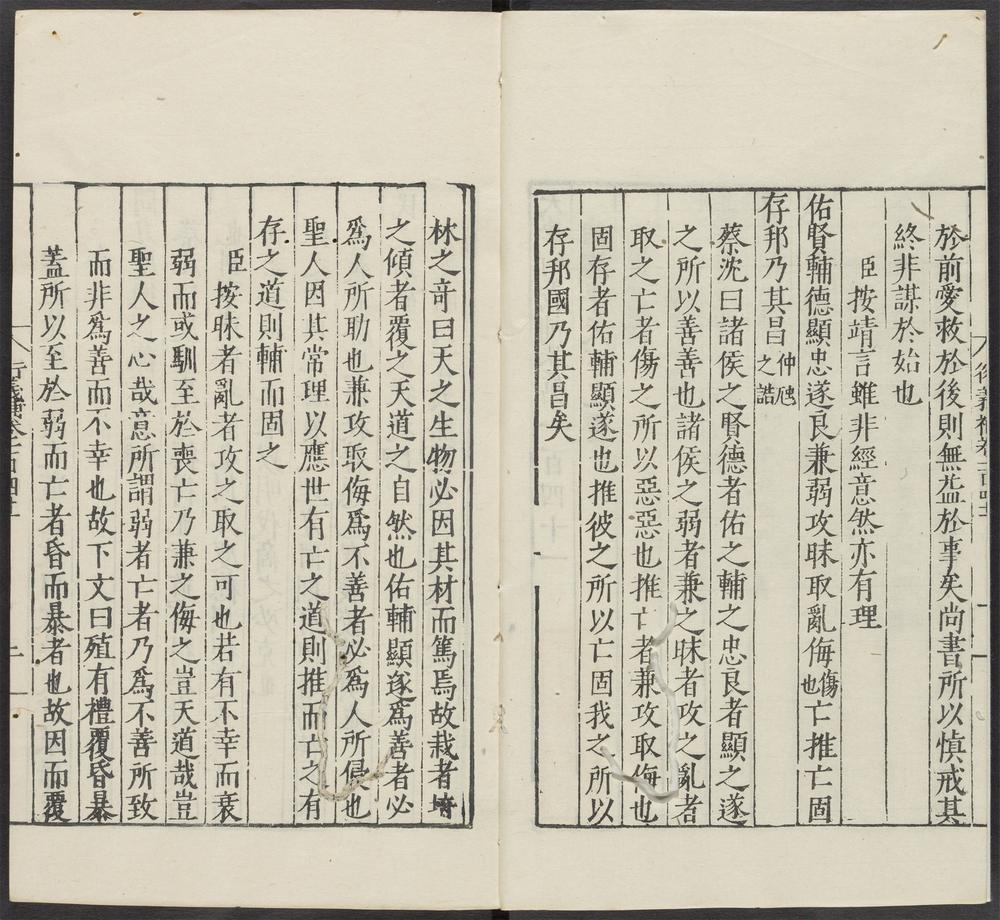 於前愛救於後則無益於事矣尚書所以慎戒其
終非謀於始也
臣按靖言雖非經意然亦有理
佑賢輔德顯忠遂良兼弱攻昧取亂侮傷也亡推亡固
存邦乃其昌仲虺之誥
蔡沈曰諸侯之賢德者佑之輔之忠良者顯之遂
之所以善善也諸侯之弱者兼之昧者攻之亂者
取之亡者傷之所以惡惡也推亡者兼攻取侮也
固存者佑輔顯遂也推彼之所以亡固我之所以
存邦國乃其昌矣
林之奇曰天之生物必因其材而篤焉故栽者培
之傾者覆之天道之自然也佑輔顯遂爲善者必
爲人所助也兼攻取侮爲不善者必爲人所侵也
聖人因其常理以應世有亡之道則推而亡之有
存之道則輔而固之
臣按昧者亂者攻之取之可也若有不幸而衰
弱而或馴至於喪亡乃兼之侮之豈天道哉豈
聖人之心哉意所謂弱者亡者乃爲不善所致
而非爲善而不幸也故下文曰殖有禮覆昏暴
蓋所以至於弱而亡者昏而暴者也故因而覆